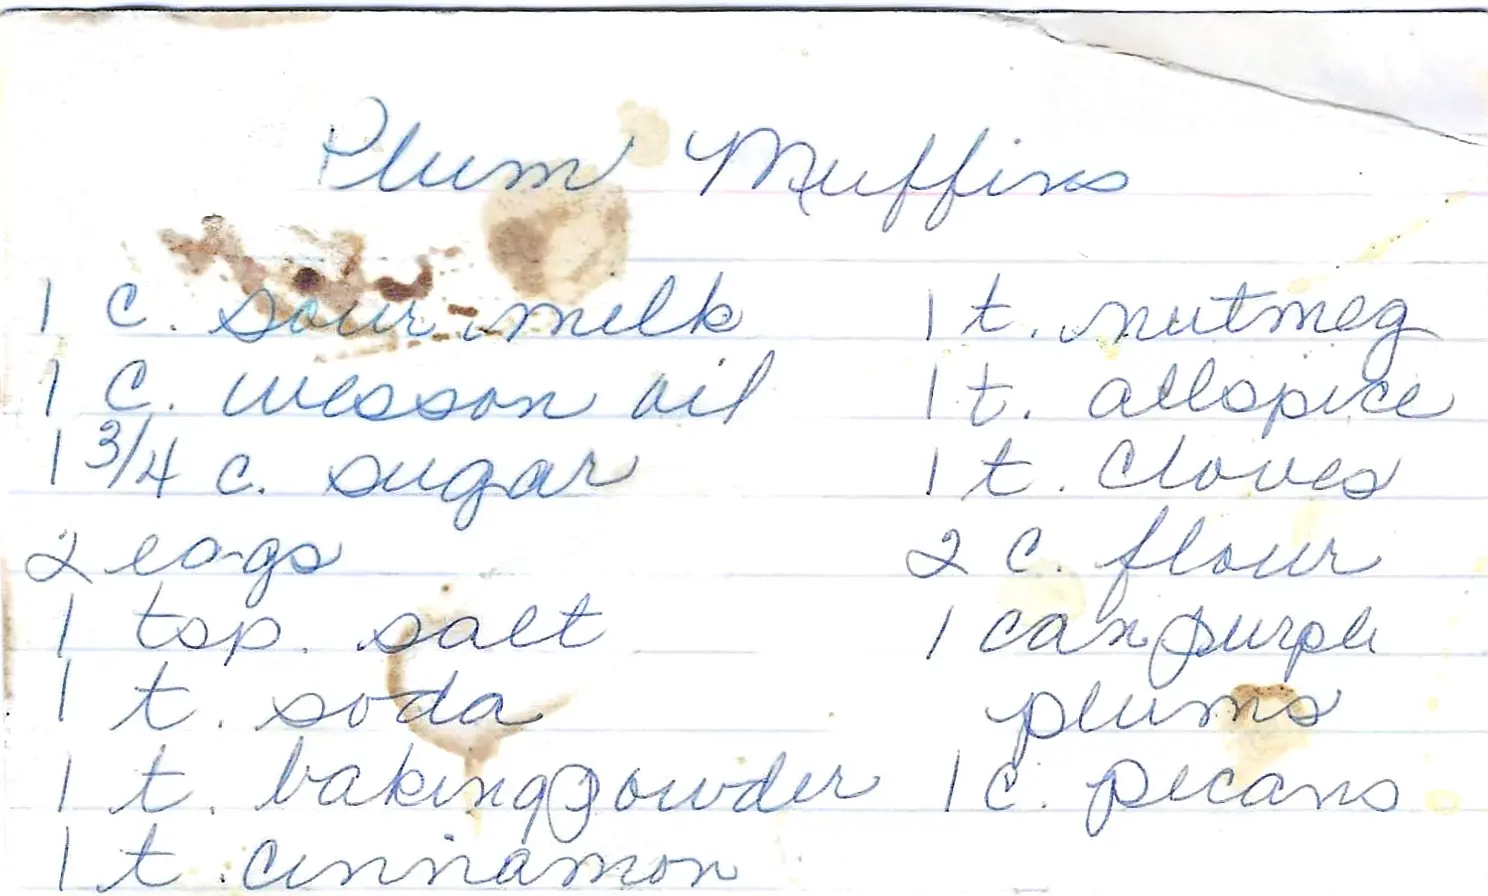 Plum Muffins
1 c. sour milk
1 C. wesson oil
1 3/4 c. sugar
2 eggs
1 tsp. salt
1 t. soda
1 t. baking powder
1 t. cinnamon
1 t. nutmeg
1 t. allspice
1 t. Cloves
2 c. flour
1 can purple
plums
1 c. pecans